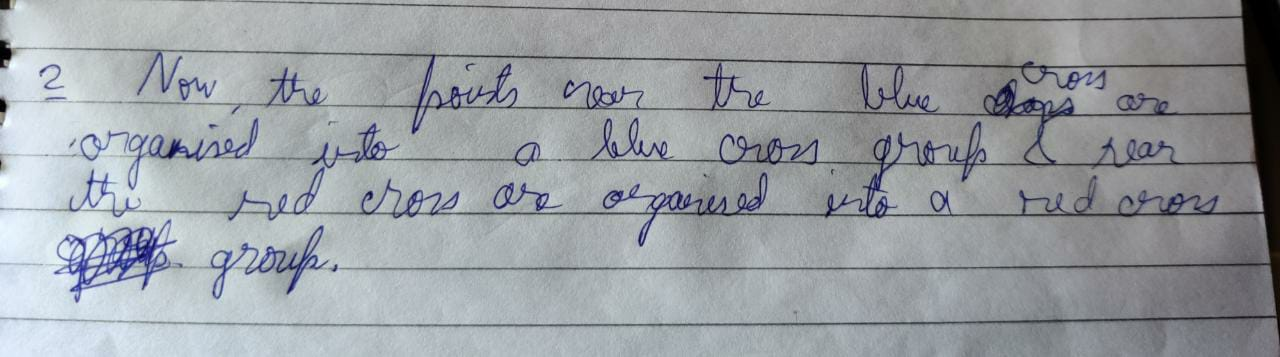 2 Now, the points near the blue cross are
organised into a blue cross group & near
the red cross are organised into a red cross
group.